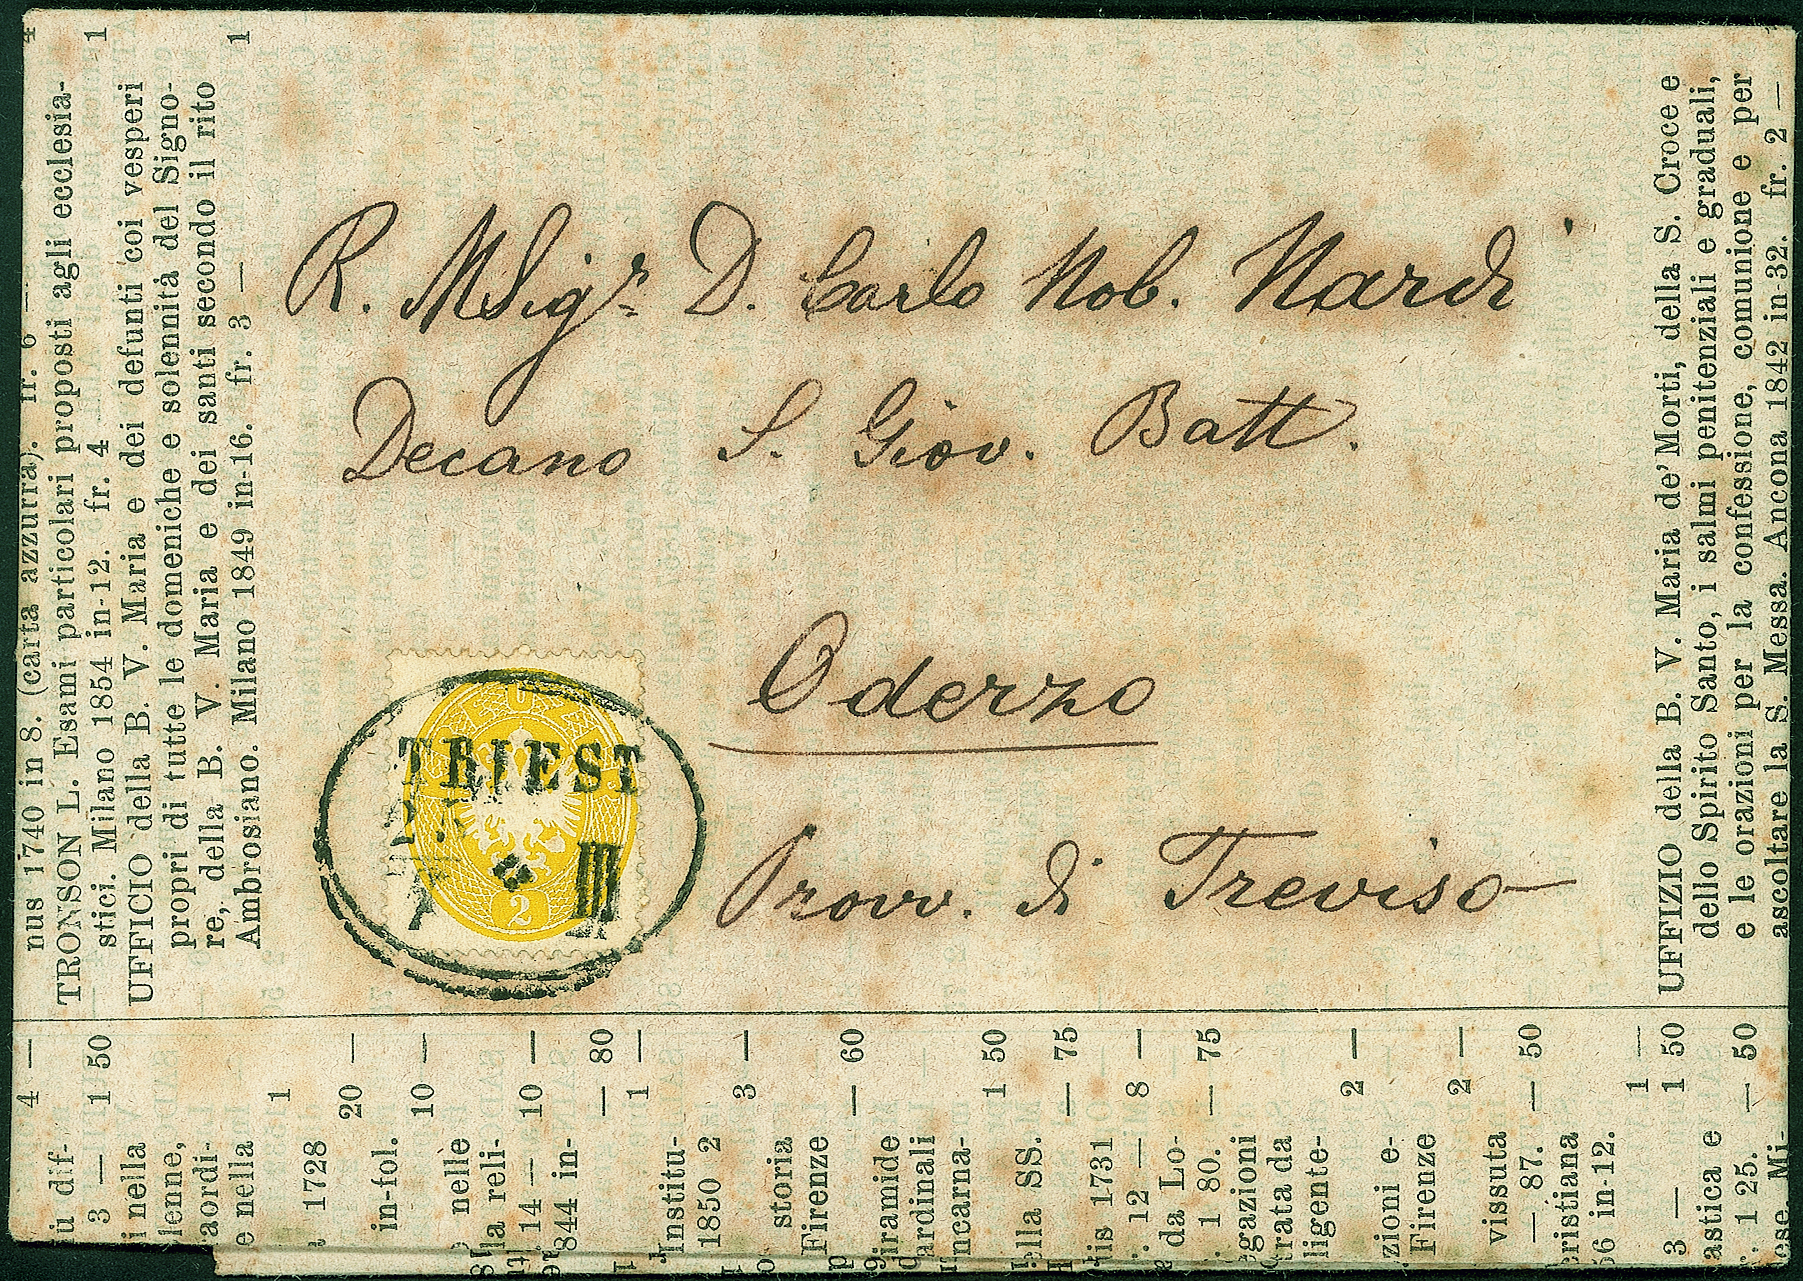 R. MSigr. D. Carlo Nob. Nardi
Decano S. Giov. Batt.
Oderzo
Prov. di Treviso
TRIEST
III
2
nus 1740 in 8. (carta azzurra). fr. 6 —
TRONSON L. Esami particolari proposti agli ecclesia-
stici. Milano 1854 in-12. fr. 4
1
UFFICIO della B. V. Maria e dei defunti coi vesperi
propri di tutte le domeniche e solennità del Signo-
re, della B. V. Maria e dei santi secondo il rito
Ambrosiano. Milano 1849 in-16. fr. 3 —
1
UFFIZIO della B. V. Maria de' Morti, della S. Croce e
dello Spirito Santo, i salmi penitenziali e graduali,
e le orazioni per la confessione, comunione e per
ascoltare la S. Messa. Ancona 1842 in-32. fr. 2 —
iù dif-
4 —
3 — 1 50
i nella
lenne,
aordi-
e nella
1
1728
20 —
in-fol.
10 —
nelle
la reli-
14 — 10 —
844 in-
— 80
1 —
Institu-
1850 2
3 —
storia
Firenze
— 60
iramide
ardinali
ncarna-
1 50
ella SS.
— 75
his 1731
12 — 8 —
da Lo-
1 80. — 75
egazioni
rata da
ligente-
2 —
zioni e-
Firenze
2 —
vissuta
— 87. — 50
cristiana
66 in-12.
1 —
3 — 1 50
astica e
1 25. — 50
ese. Mi-